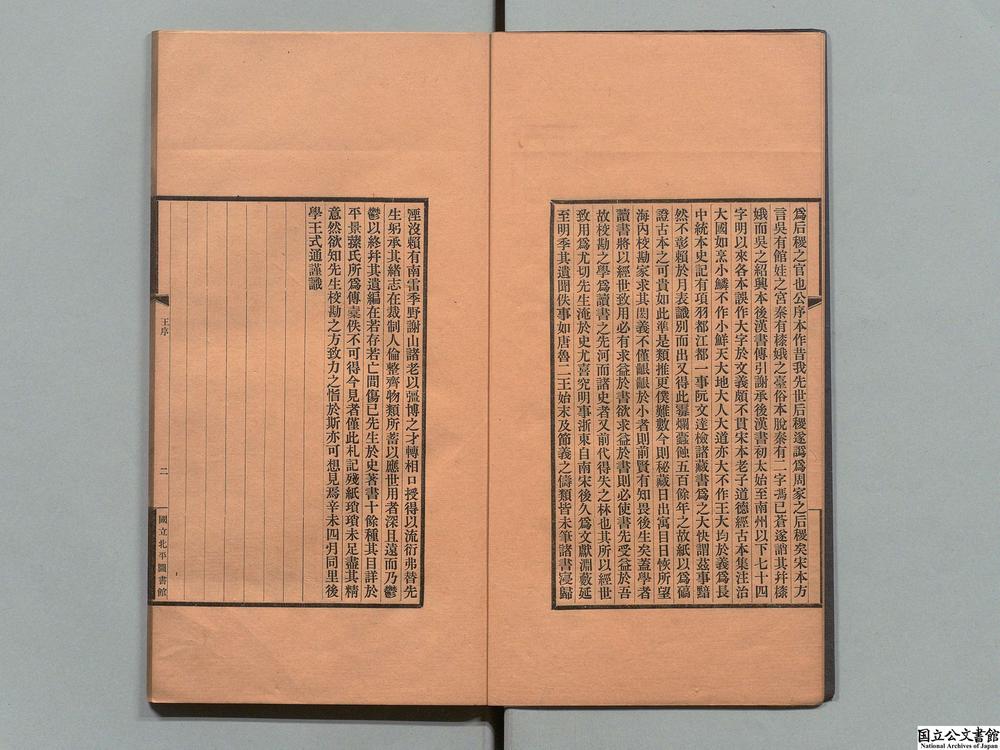 爲后稷之官也公序本作昔我先世后稷遂譌爲周家之后稷矣宋本方
言吳有館娃之宮秦有㯃娥之臺俗本脫秦有二字馮已蒼遂誚其幷㯃
娥而吳之紹興本後漢書傳引謝承後漢書初太始至南州以下七十四
字明以來各本誤作大字於文義頗不貫宋本老子道德經古本集注治
大國如烹小鱗不作小鮮天大地大人大道亦大不作王大均於義爲長
中統本史記有項羽都江都一事阮文達檢諸藏書爲之大快謂茲事黯
然不彰賴於月表識別而出又得此霾爛蠧蝕五百餘年之故紙以爲碻
證古本之可貴如此準是類推更僕難數今則秘藏日出寓目日恢所望
海內校勘家求其閎義不僅齦齦於小者則前賢有知畏後生矣蓋學者
讀書將以經世致用必有求益於書欲求益於書則必使書先受益於吾
故校勘之學爲讀書之先河而諸史者又前代得失之林也其所以經世
致用爲尤切先生淹於史尤喜究明事浙東自南宋後久爲文獻淵藪延
至明季其遺聞佚事如唐魯二王始末及節義之儔類皆未筆諸書寖歸
湮沒賴有南雷季野謝山諸老以彊博之才轉相口授得以流衍弗替先
生躬承其緖志在裁制人倫整齊物類所蓄以應世用者深且遠而乃鬱
鬱以終幷其遺編在若存若亡間傷已先生於史著書十餘種其目詳於
平景蓀氏所爲傳臺佚不可得今見者僅此札記殘紙瑣瑣未足盡其精
意然欲知先生校勘之方致力之恉於斯亦可想見焉辛未四月同里後
學王式通謹識
王序
二
國立北平圖書館
国立公文書館
National Archives of Japan